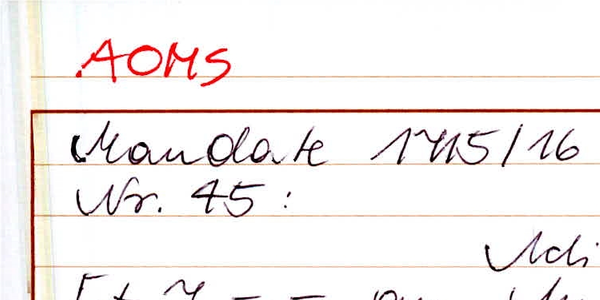 AOMS
Mandate 1715/16
Nr. 45: